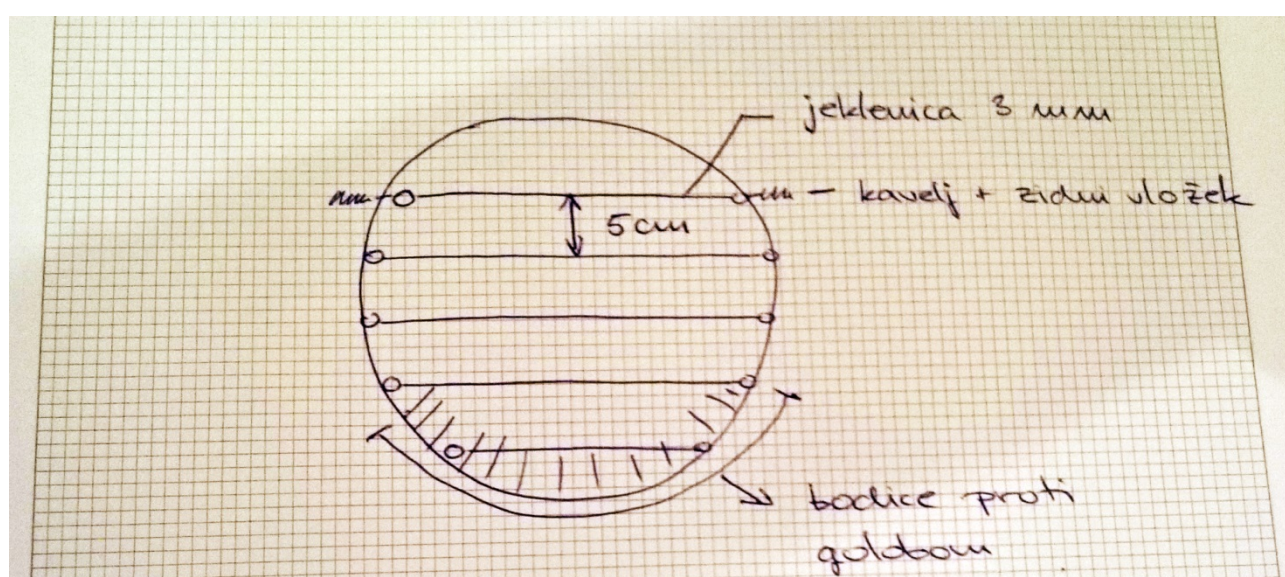 jeklenica 3 mm
kavelj + zidni vložek
5 cm
bodice proti
golobom